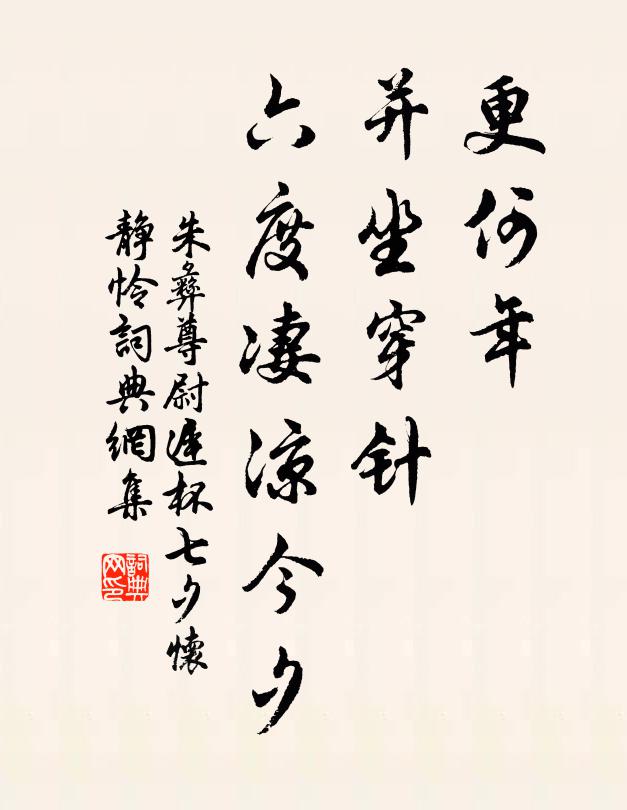 更何年
并坐穿针
六度凄凉今夕
朱彝尊尉遲杯七夕懷
静怜詞典網集
詞典
网印